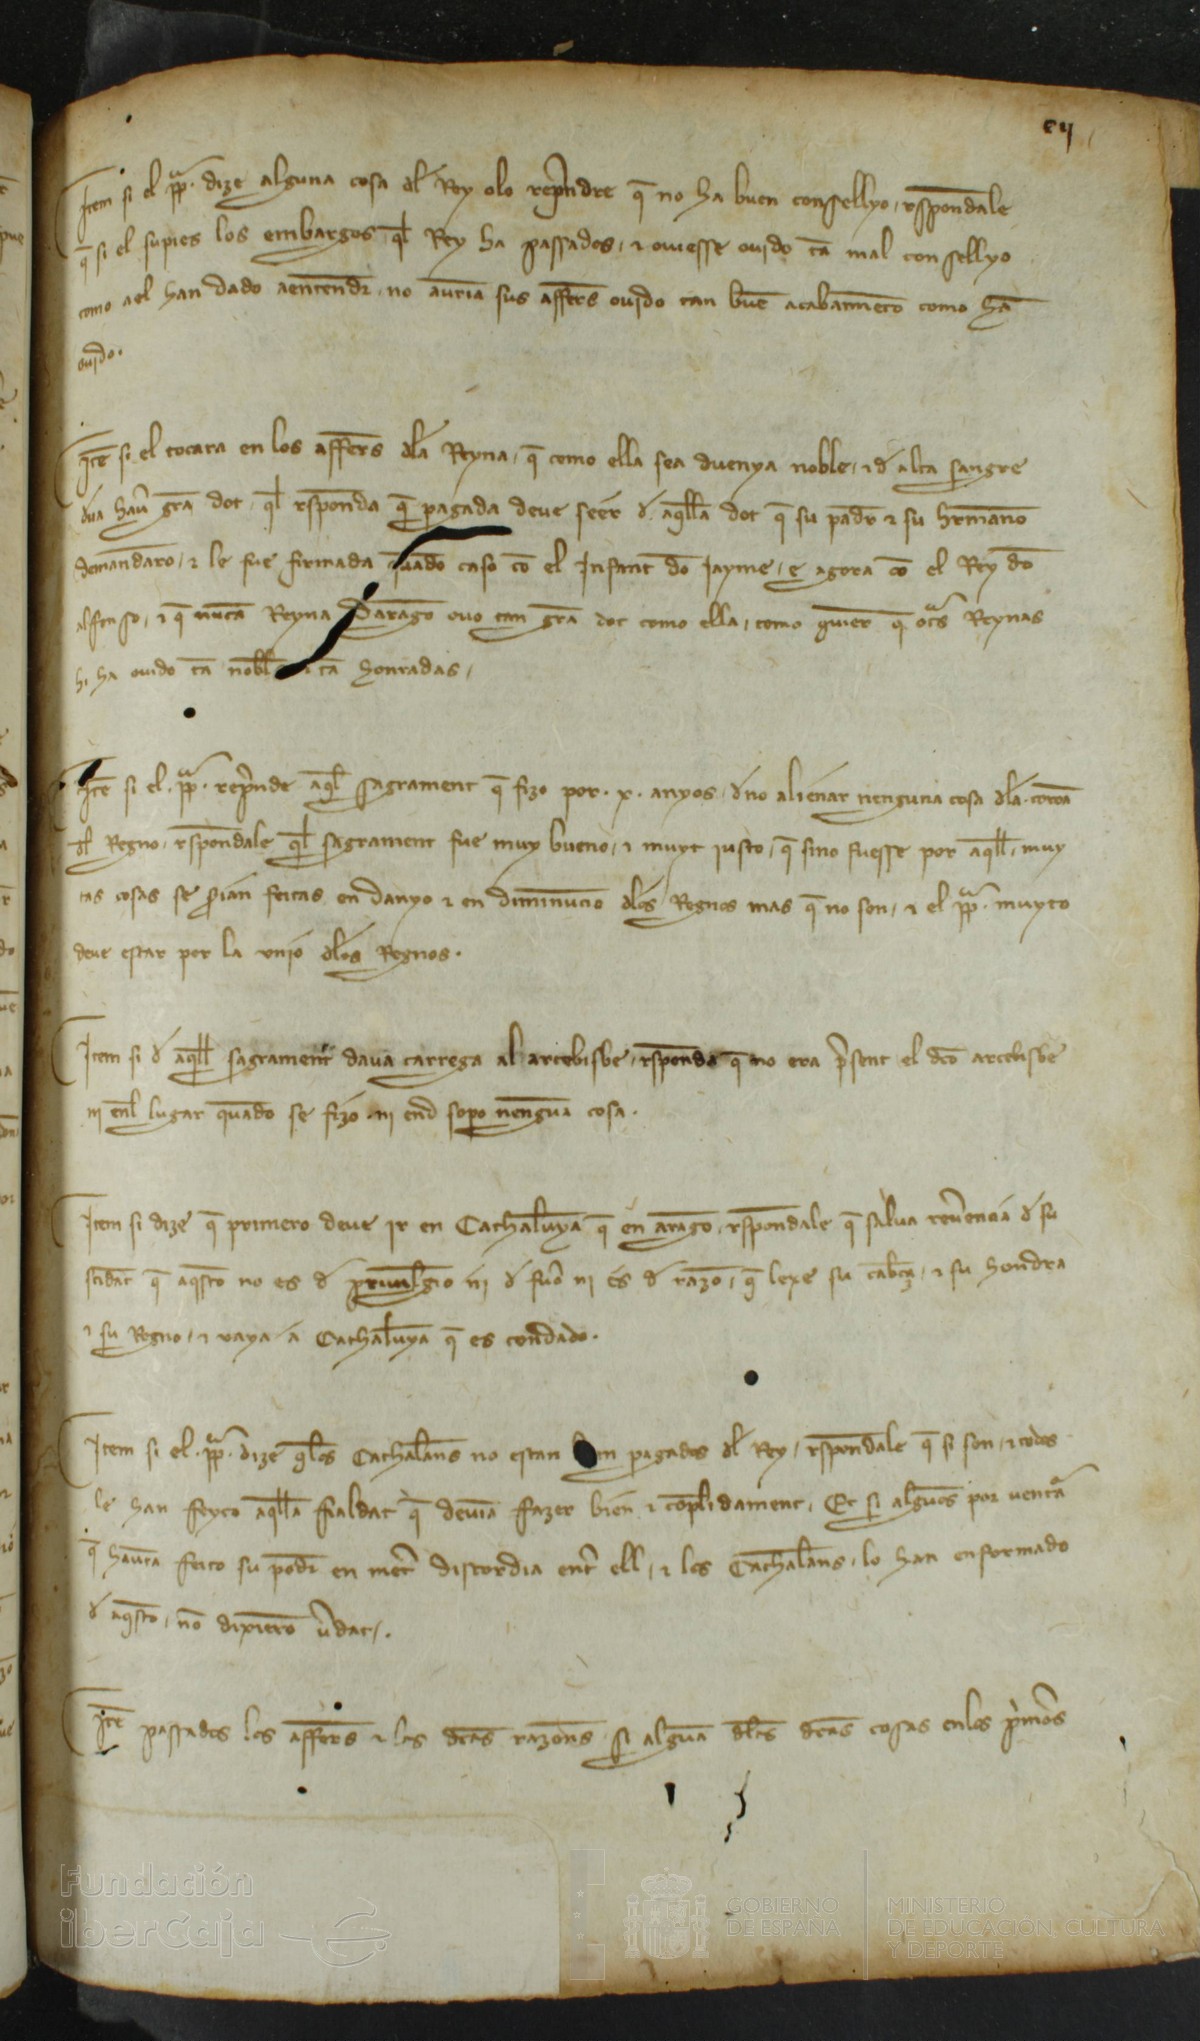 cij
Item si el pp̄a. dize alguna cosa dl Rey olo rep̄ndre q̄ no ha buen consellyo, rspondale
q̄ si el supies los embargos q̄l Rey ha passados, ⁊ ouiesse ouido tā mal consellyo
como ael han dado aentendr, no auria sus affers ouido tan buē acabamiēto como hā
ouido.
Itē si el tocara en los affers dla Reyna, q̄ como ella sea duenya noble, ⁊ d alta sangre
hau gra dot, q̄l rsponda q̄ pagada deue seer d aq̄lla dot q̄ su padr ⁊ su hrmano
demandaro, ⁊ le fue firmada quādo caso cō el Infant dō Jayme, e agora cō el Rey dō
alfonso, ⁊ q̄ nūca Reyna Daragō ouo tan grā dot como ella, como quier q̄ otas Reynas
hi ha ouido tā nobles ⁊ tā honradas,
Itē si el .pp̄a. rep̄nde aq̄l sagrament q̄ fizo por .x. anyos, d no alienar nenguna cosa dla corōa
dl Regno, rspondale q̄l sagrament fue muy bueno, ⁊ muyt iusto, q̄ sino fuesse por aq̄ll, muy
tas cosas se sian feitas en danyo ⁊ en diminucio dlos Regnos mas q̄ no son, ⁊ el pp̄a. muyto
deue estar por la vnio dlos Regnos.
Item si d aq̄ll sagrament daua carrega al arcebisbe, rsponda q̄ no era p̄sent el dcō arcebisbe
ni enl lugar quādo se fizo ni end sopo nengua cosa.
Item si dize q̄ primero deue ir en Cathaluya q̄ en aragō, rspondale q̄ salua reuencia d su
sctidat q̄ aqsto no es d priuilgio ni d fuo ni es d razō, q̄ lexe su cabça, ⁊ su hondra
⁊ su Regno, ⁊ vaya a Cathaluya q̄ es condado.
Item si el .pp̄a. dize q̄los Cathalans no estan ben pagados dl Rey, rspondale q̄ si son, ⁊ todos
le han feyto aq̄lla fialdat q̄ deuiā fazer bien ⁊ coplidament, Et si algūos por ventā
q̄ hauiā feito su podr en metr discordia entr ell, ⁊ los Cathalans, lo han enformado
d aqsto, nō dixierō v̄dat,.
Itē passados los affers ⁊ las dcas razons, si algūa dlas dcas cosas enlos p̄mos
Fundación
iberCaja
GOBIERNO
DE ESPAÑA
MINISTERIO
DE EDUCACIÓN, CULTURA
Y DEPORTE